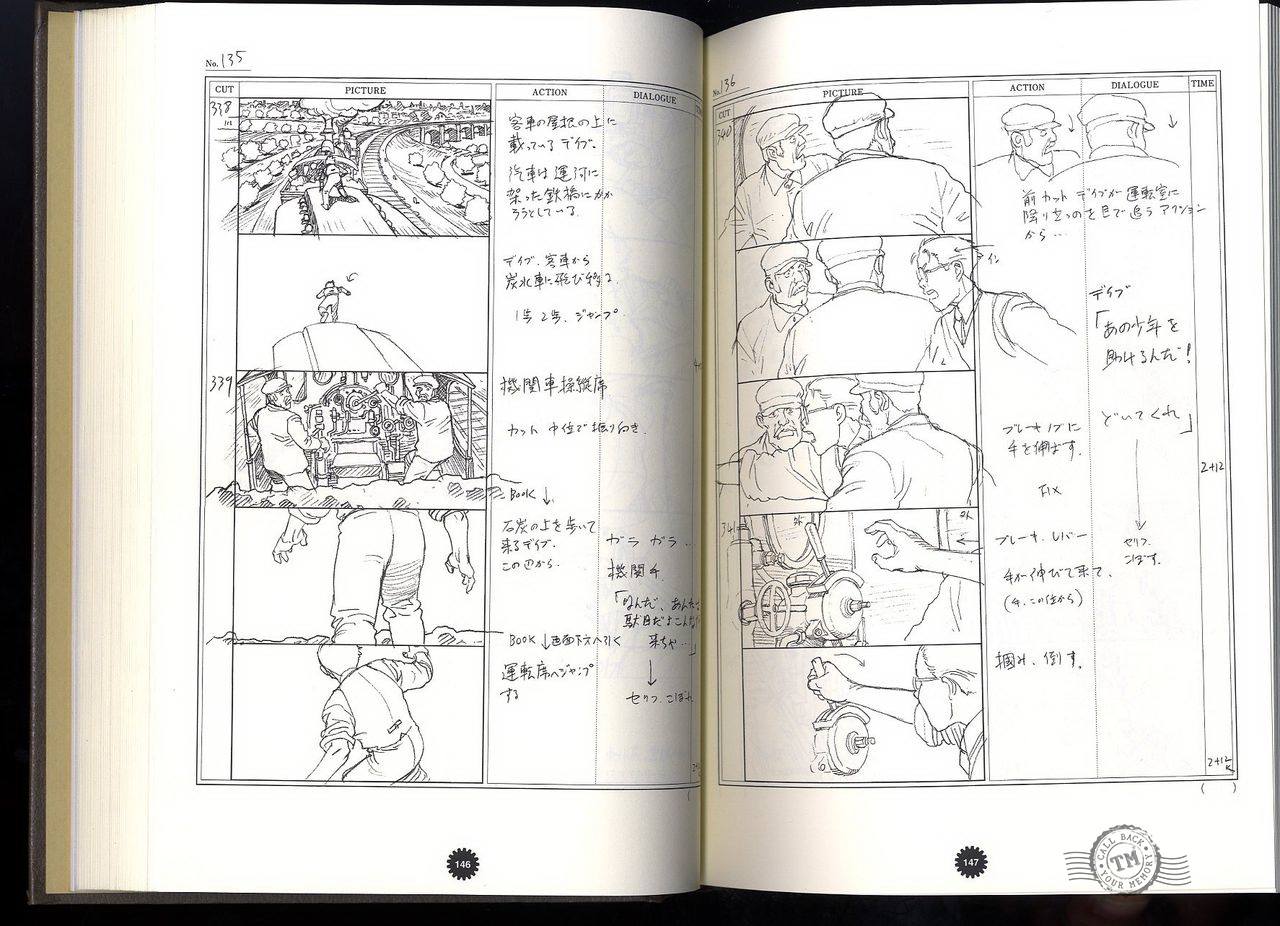 No. 135
CUT
PICTURE
ACTION
DIALOGUE
338
客車の屋根の上に
載っているデイブ.
汽車は運河に
架った鉄橋にかか
ろうとしている.
デイブ.客車から
炭水車に飛び移る.
1歩2歩.ジャンプ
339
機関車操縦席
カット中位で振り向き.
BOOK ↓
石炭の上を歩いて
来るデイブ.
この辺から...
ガラ ガラ...
機関手.
「なんだ、あんた
駄目だよこんな
来ちゃ...」
BOOK ↓画面下方へ引く
運転席へジャンプ
する
セリフ.こぼれ
146
No. 136
CUT
PICTURE
ACTION
DIALOGUE
TIME
340
前カット デイブが運転室に
降り立つのを目で追うアクション
から...
イン
デイブ
「あの少年を
助けるんだ!
どいてくれ」
ブレーキノブに
手を伸ばす.
FIX
2+12
341
外
外
ブレーキ.レバー
手が伸びて来て、
(手.この位から)
セリフ.
こぼす.
掴み、倒す.
2+12
( )
147
CALL BACK
TM
YOUR MEMORY